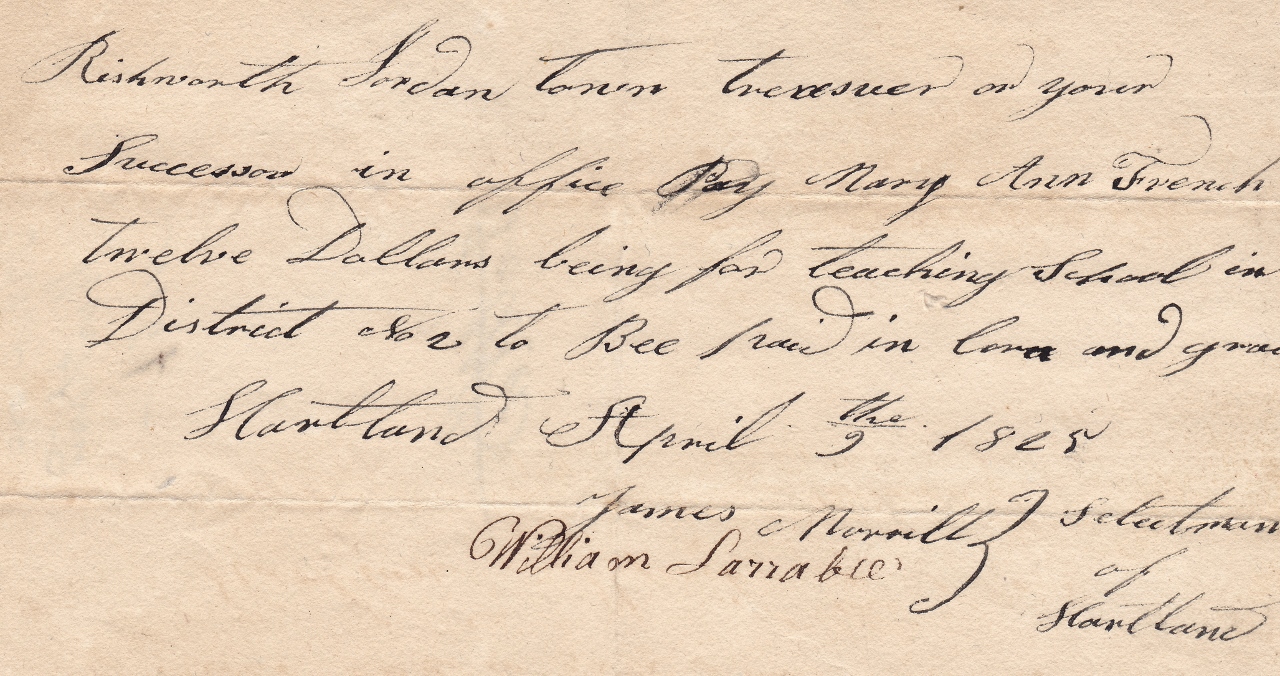 Rishworth Jordan town treasuer or your
Successor in office Pay Mary Ann French
twelve Dollars being for teaching School in
District No 2 to Bee paid in corn and grai
Hartland April the 9 1825
James Morrill } Selectmen
William Larrabee of
Hartland